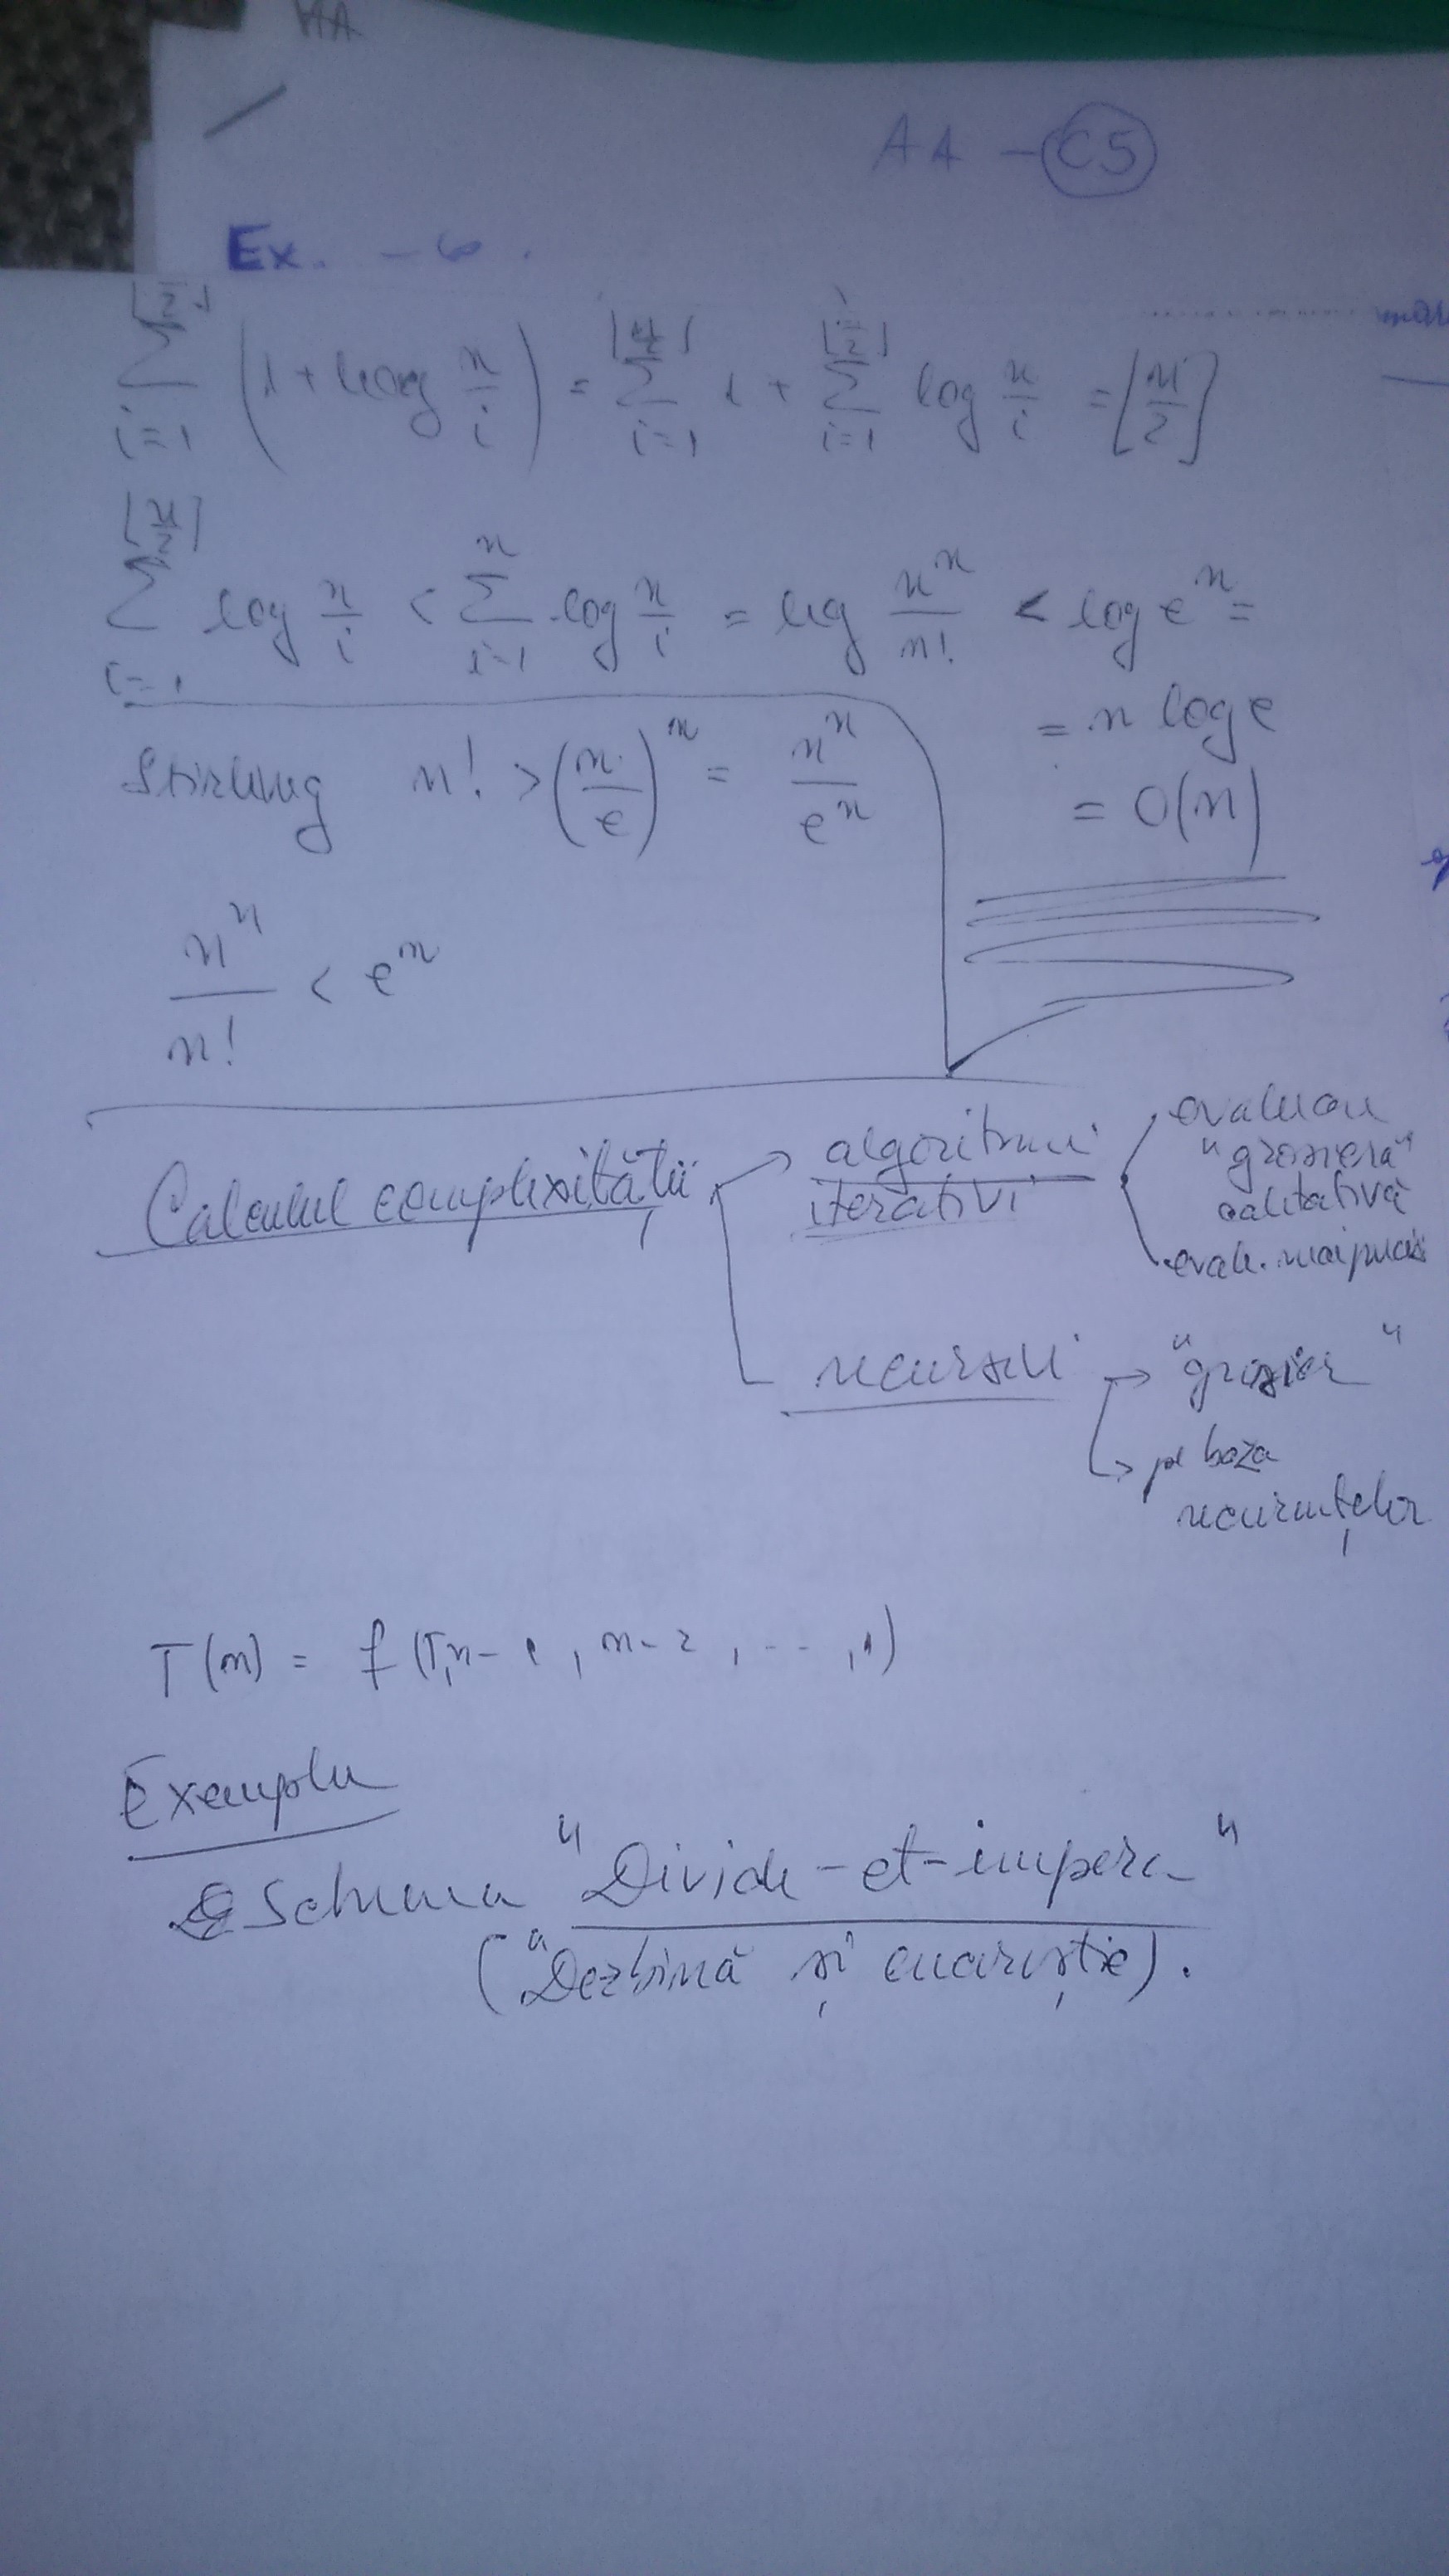 AA
AA - C5
Ex.
∑_{i=1}^{⌊n/2⌋} (1 + log n/i) = ∑_{i=1}^{⌊n/2⌋} 1 + ∑_{i=1}^{⌊n/2⌋} log n/i = ⌊n/2⌋
∑_{i=1}^{⌊n/2⌋} log n/i < ∑_{i=1}^{n} log n/i = log n^n/n! < log e^n =
= n log e
= O(n)
Stirling n! > (n/e)^n = n^n/e^n
n^n/n! < e^n
Calculul complexității
algoritmi
iterativi
evaluare
"grosieră"
calitativă
evalu. mai precis
recursivi
"grosier"
pe baza
recurențelor
T(n) = f(T, n-1, n-2, ..., 1)
Exemplu
Schema "Divide-et-impera"
("Dezbină și cucerește).